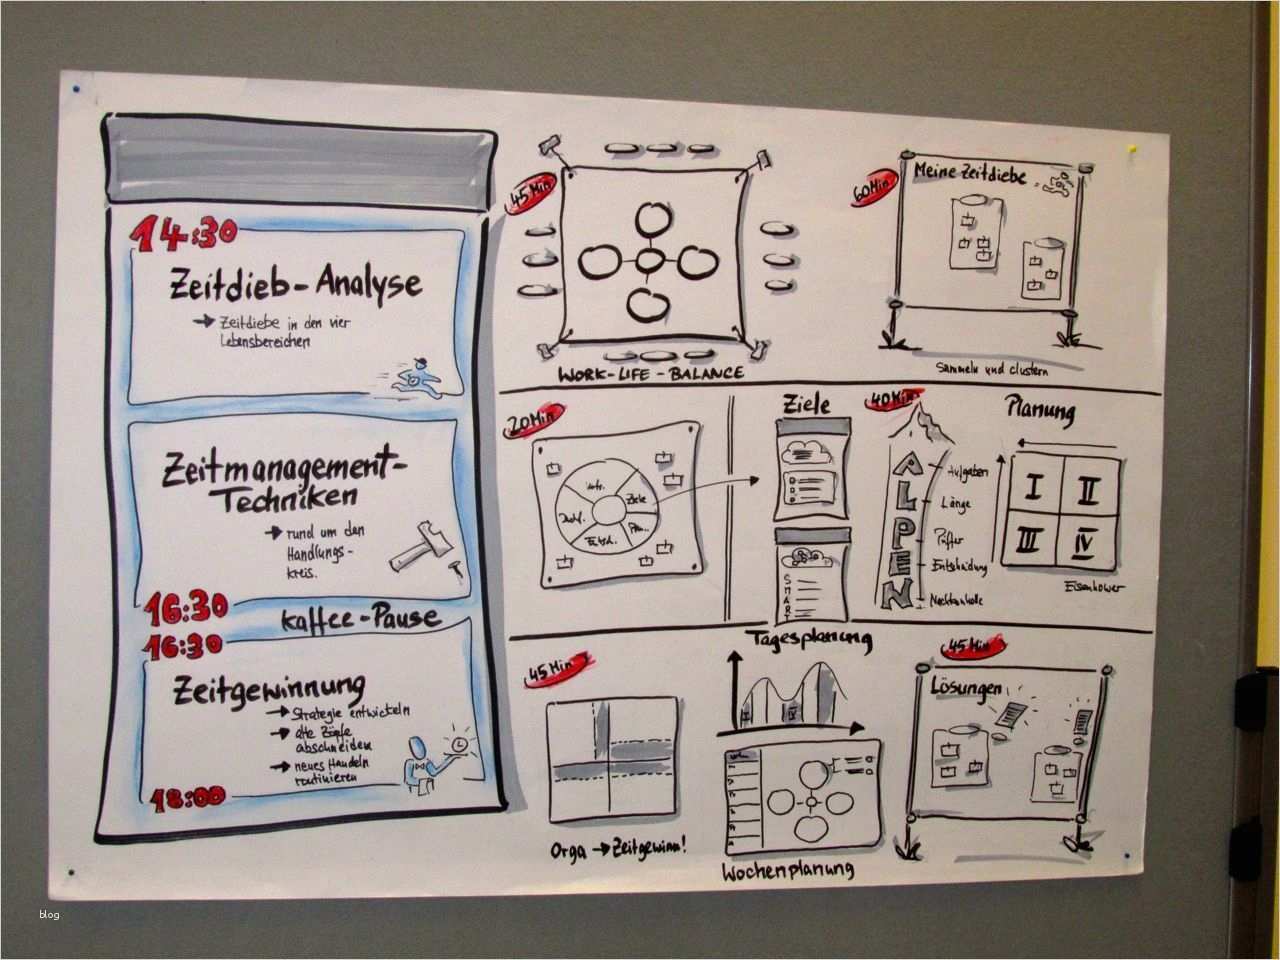 14:30
Zeitdieb-Analyse
→ Zeitdiebe in den vier
Lebensbereichen
Zeitmanagement-
Techniken
→ rund um den
Handlungs-
kreis.
16:30
Kaffee-Pause
16:30
Zeitgewinnung
→ Strategie entwickeln
→ alte Zöpfe
abschneiden
→ neues Handeln
routinieren
18:00
45 Min
WORK-LIFE-BALANCE
60 Min
Meine Zeitdiebe
Sammeln und clustern
20 Min
Ziele
SMART
40 Min
ALPEN
Aufgaben
Länge
Puffer
Entscheidung
Nachkontrolle
Planung
I
II
III
IV
Eisenhower
45 Min
Orga → Zeitgewinn!
Tagesplanung
Wochenplanung
45 Min
Lösungen
blog